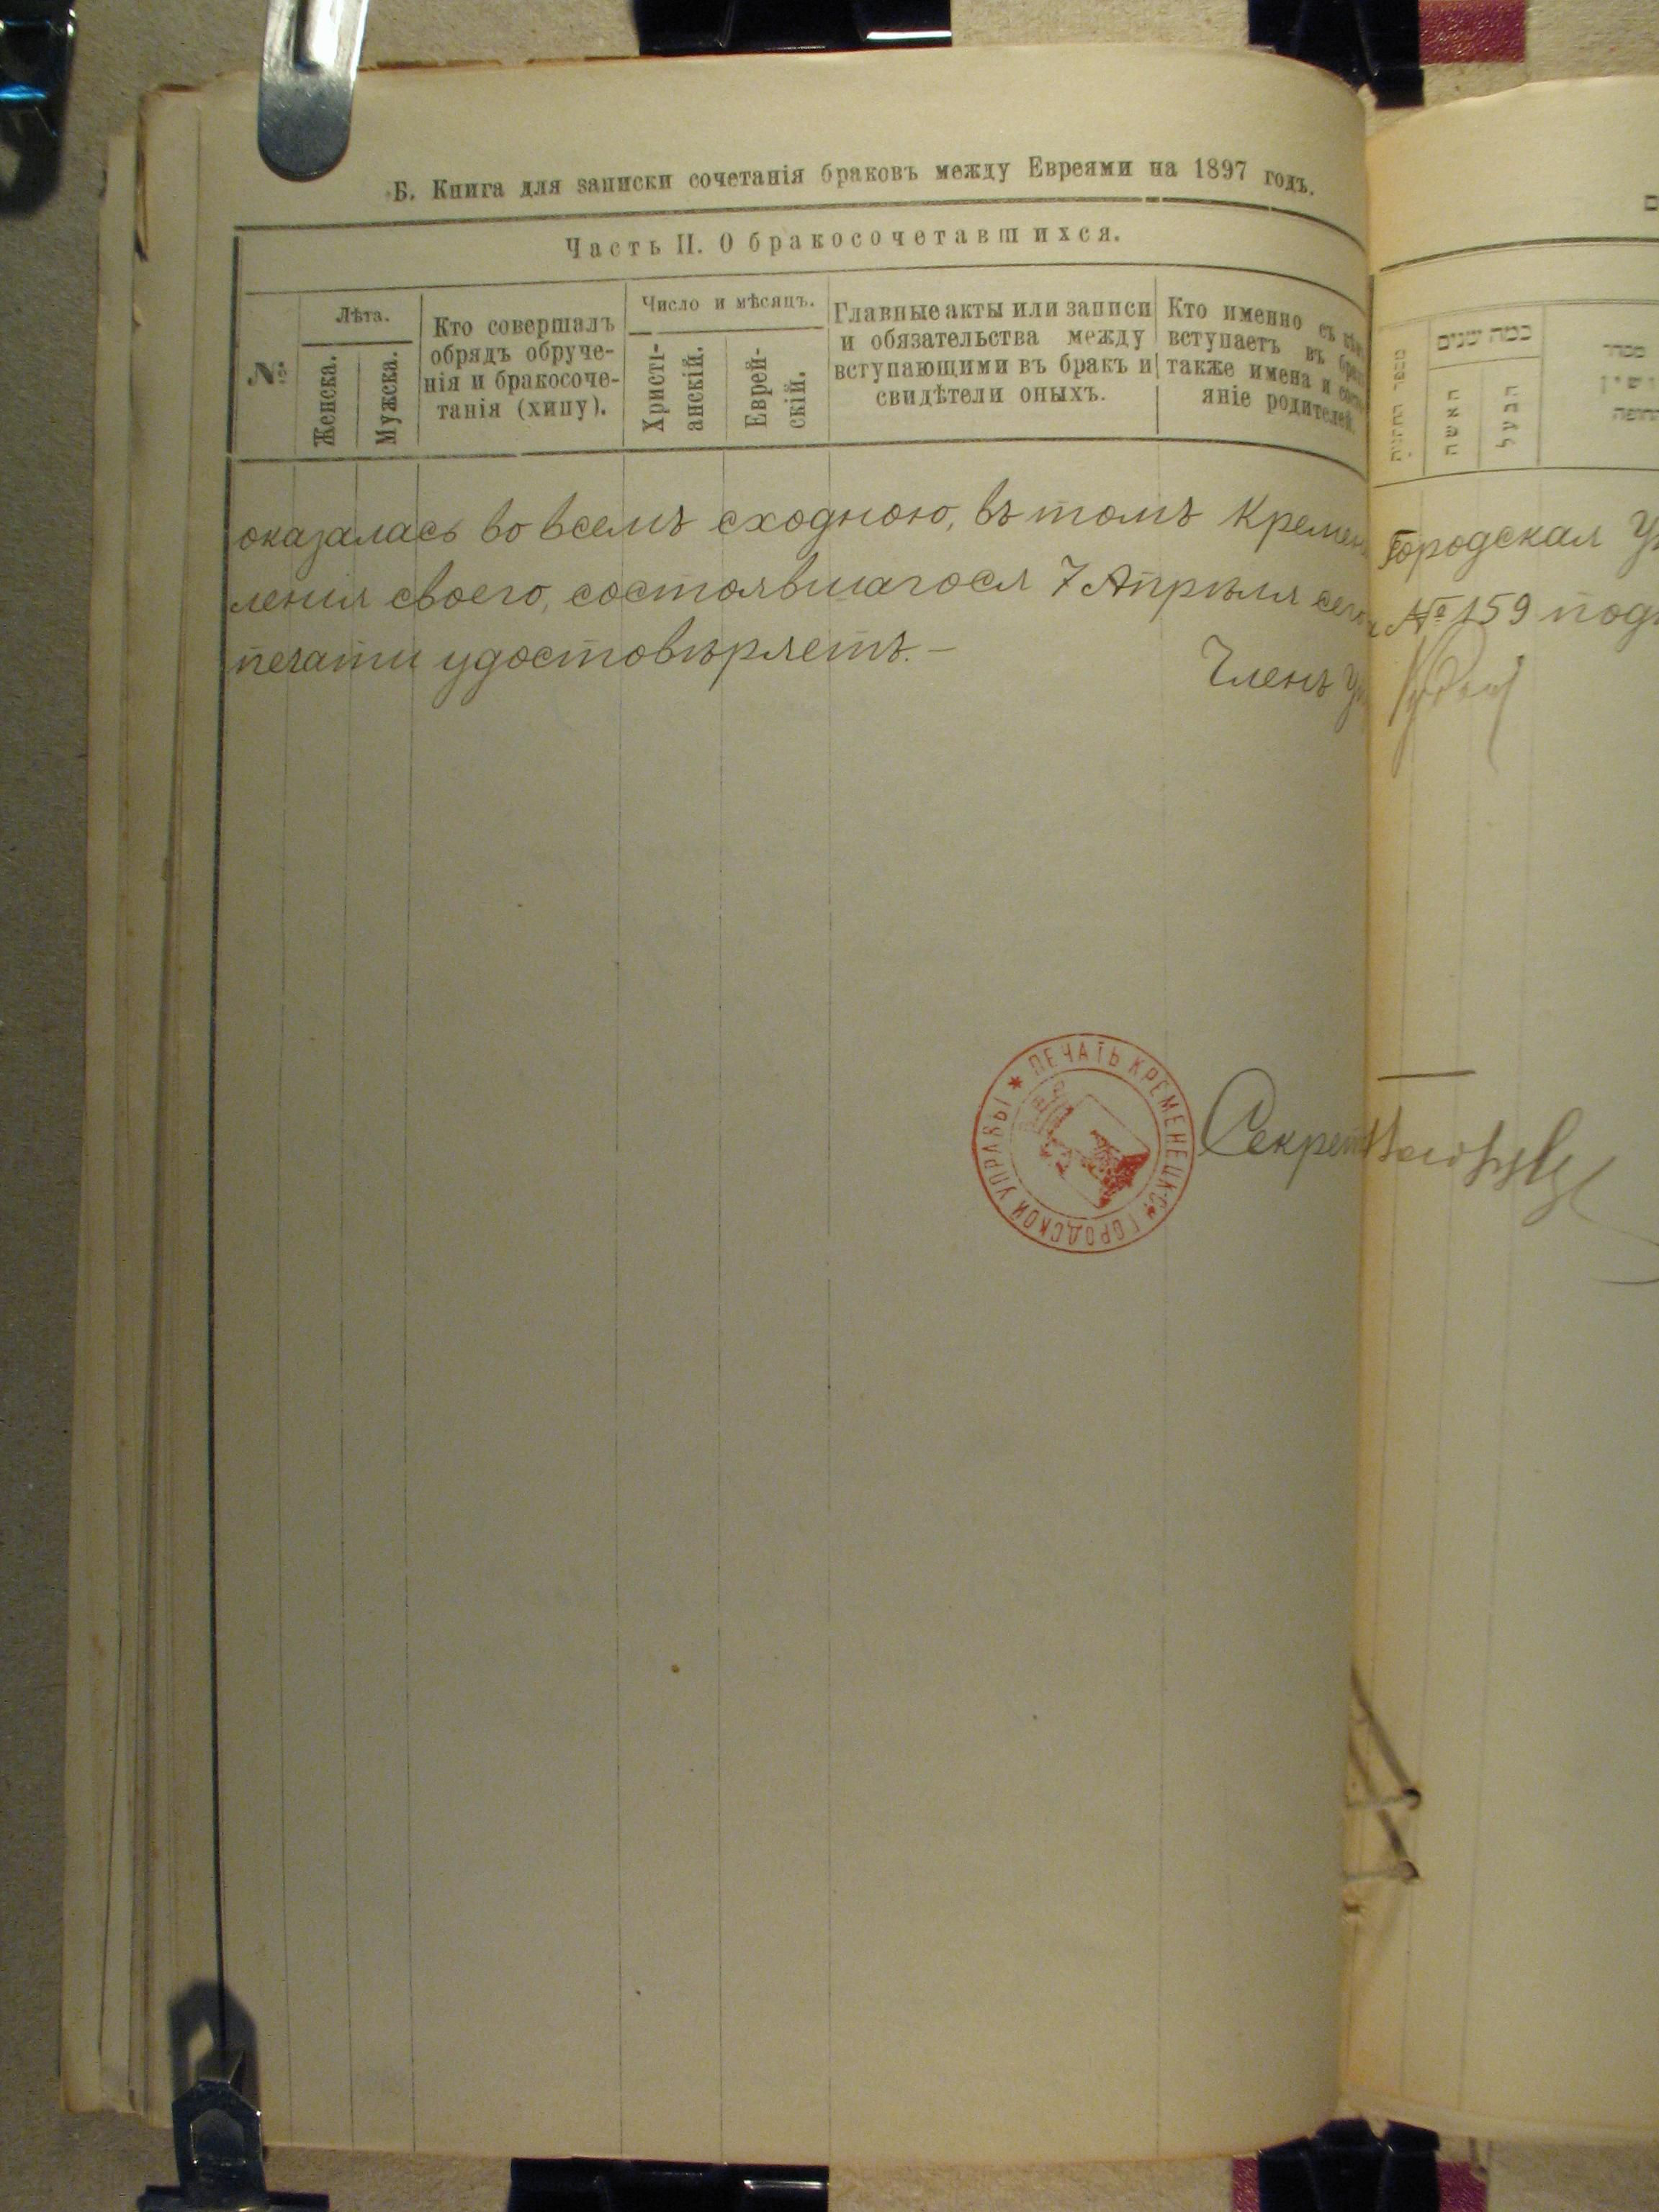 Б. Книга для записки сочетанія браковъ между Евреями на 1897 годъ.
Часть II. О бракосочетавшихся.
№
Лѣта.
Женска.
Мужска.
Кто совершалъ
обрядъ обруче-
нія и бракосоче-
танія (хипу).
Число и мѣсяцъ.
Христі-
анскій.
Еврей-
скій.
Главные акты или записи
и обязательства между
вступающими въ бракъ и
свидѣтели оныхъ.
Кто именно съ
вступаетъ въ
также имена и
яніе родителей.
оказалась во всемъ сходною, въ томъ Кремен
ленія своего, состоявшагося 7 Апрѣля сего
печати удостовѣряетъ.—
Членъ
ПЕЧАТЬ КРЕМЕНЕЦК. ГОРОДСКОЙ УПРАВЫ
Секрет
כמה שנים
האשה
הבעל
Городская
№ 159